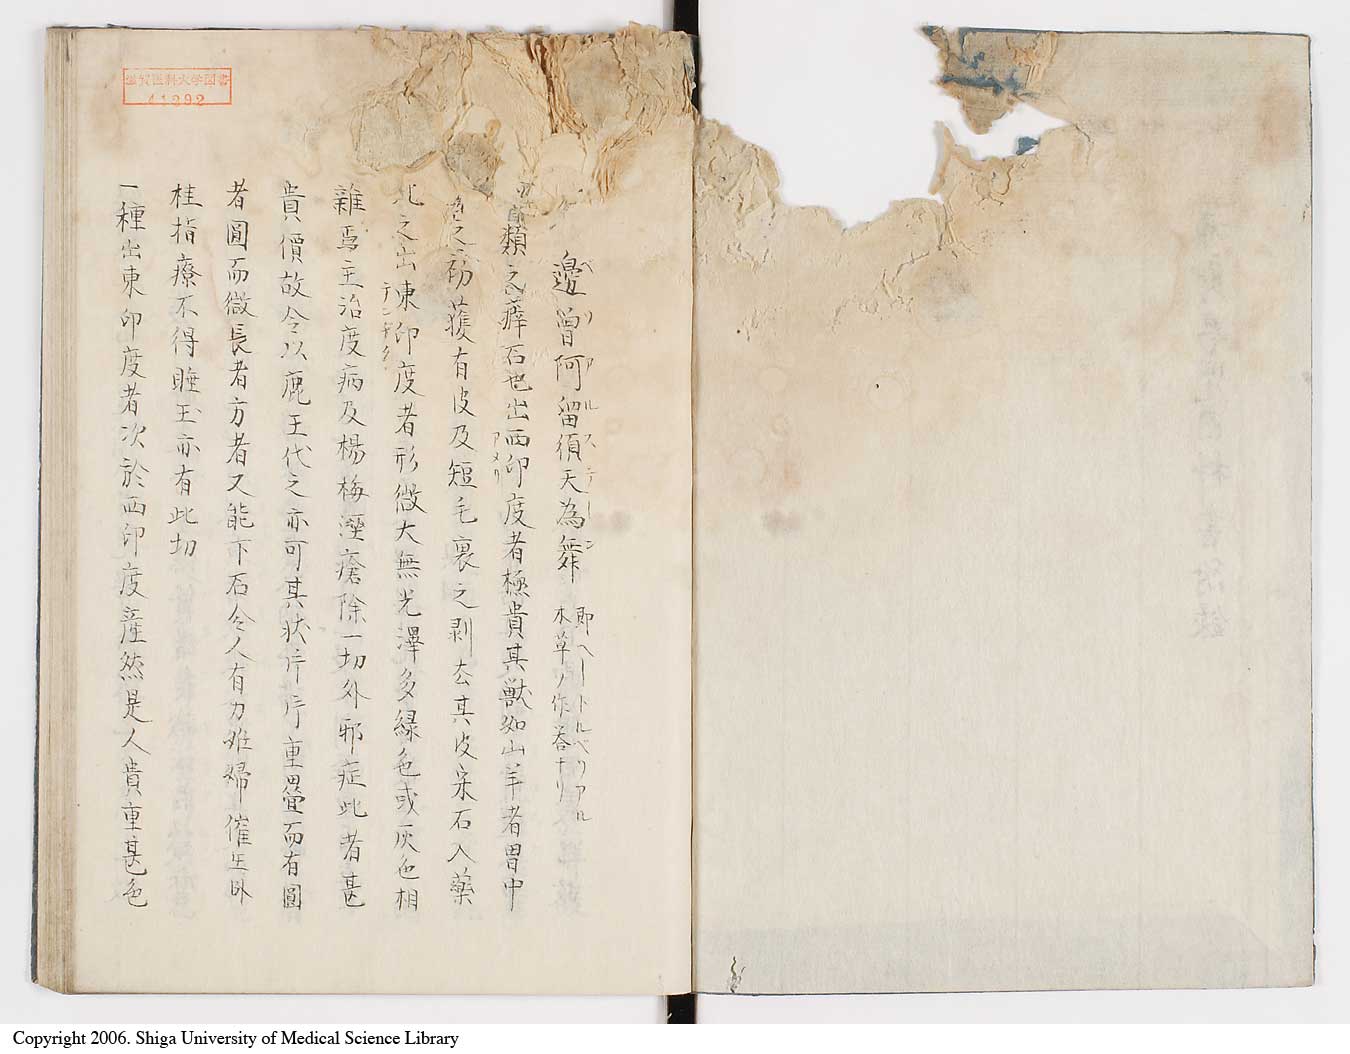 邊曽阿留須天為舜 即ヘートルベリアル
ベリアルステーン 本草ノ作荅ナリ
類之癖石也出西印度者極貴其獣如山羊者胃中
アメリ
之初獲有皮及短毛裏之剥去其皮采石入藥
北之出東印度者形微大無光澤多緑色或灰色相
雜焉主治度病及楊梅瀝瘡除一切外邪症此者甚
貴價故今以鹿玉代之亦可其状片片重疊而有圓
者圓而微長者方者又能下石令人有力难婦催生臥
桂指療不得睡玉亦有此切
一種出東印度者次於西印度産然是人貴重甚色
滋賀医科大学図書
41292
Copyright 2006. Shiga University of Medical Science Library